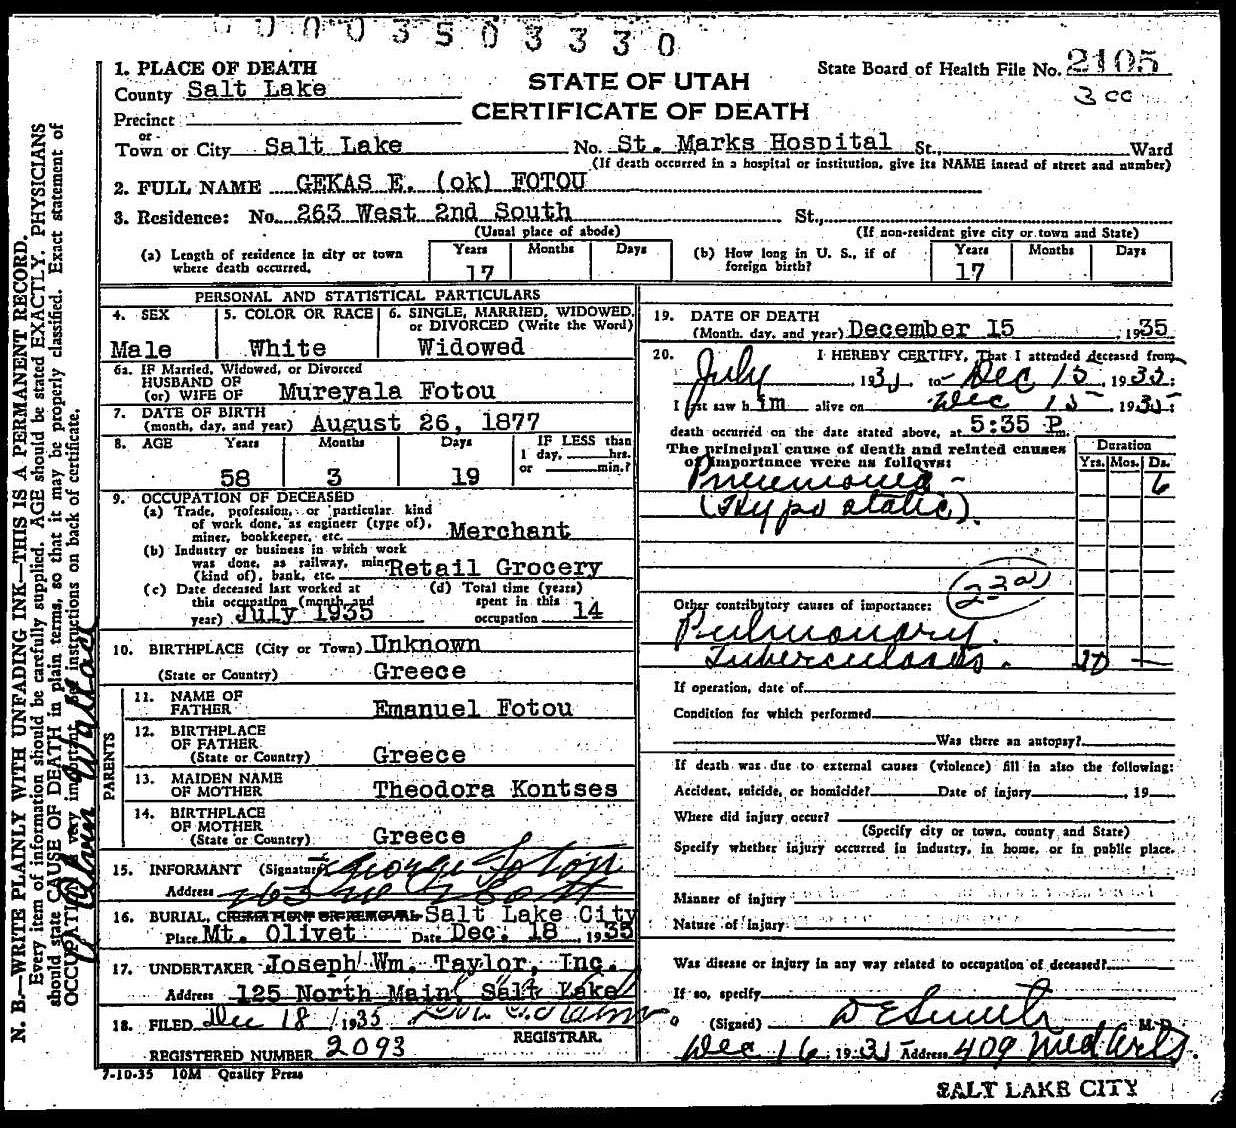 0 0 0 0 3 5 0 3 3 3 0
1. PLACE OF DEATH
County Salt Lake
Precinct
or
Town or City Salt Lake No. St. Marks Hospital St., Ward
(If death occurred in a hospital or institution, give its NAME instead of street and number)
STATE OF UTAH
CERTIFICATE OF DEATH
State Board of Health File No. 2105
3 cc
2. FULL NAME GEKAS E. (ok) FOTOU
3. Residence: No. 263 West 2nd South St.,
(Usual place of abode) (If non-resident give city or town and State)
(a) Length of residence in city or town where death occurred. Years 17 Months Days
(b) How long in U. S., if of foreign birth? Years 17 Months Days
PERSONAL AND STATISTICAL PARTICULARS
4. SEX
Male
5. COLOR OR RACE
White
6. SINGLE, MARRIED, WIDOWED, or DIVORCED (Write the Word)
Widowed
6a. IF Married, Widowed, or Divorced
HUSBAND OF
(or) WIFE OF Mureyala Fotou
7. DATE OF BIRTH
(month, day, and year) August 26, 1877
8. AGE Years Months Days IF LESS than
1 day, hrs.
or min.?
58 3 19
9. OCCUPATION OF DECEASED
(a) Trade, profession, or particular kind
of work done, as engineer (type of),
miner, bookkeeper, etc. Merchant
(b) Industry or business in which work
was done, as railway, mine
(kind of), bank, etc. Retail Grocery
(c) Date deceased last worked at
this occupation (month and
year) July 1935
(d) Total time (years)
spent in this
occupation 14
10. BIRTHPLACE (City or Town) Unknown
(State or Country) Greece
PARENTS
11. NAME OF
FATHER Emanuel Fotou
12. BIRTHPLACE
OF FATHER
(State or Country) Greece
13. MAIDEN NAME
OF MOTHER Theodora Kontses
14. BIRTHPLACE
OF MOTHER
(State or Country) Greece
15. INFORMANT (Signature) George Fotou
Address 263 W 2 South
16. BURIAL, CREMATION OR REMOVAL Salt Lake City
Place Mt. Olivet Date Dec. 18, 1935
17. UNDERTAKER Joseph Wm. Taylor, Inc.
Address 125 North Main, Salt Lake
18. FILED Dec 18, 1935
REGISTRAR.
REGISTERED NUMBER 2093
7-10-35 10M Quality Press
19. DATE OF DEATH
(Month, day, and year) December 15, 1935
20. I HEREBY CERTIFY, That I attended deceased from
July, 1935, to Dec 15, 1935;
I last saw him alive on Dec 15, 1935;
death occurred on the date stated above, at 5:35 P.m.
The principal cause of death and related causes
of importance were as follows:
Duration
Yrs. Mos. Ds.
Pneumonia - 6
(Hypostatic).
23a
Other contributory causes of importance:
Pulmonary
Tuberculosis. 10 -
If operation, date of
Condition for which performed
Was there an autopsy?
If death was due to external causes (violence) fill in also the following:
Accident, suicide, or homicide? Date of injury, 19
Where did injury occur?
(Specify city or town, county and State)
Specify whether injury occurred in industry, in home, or in public place.
Manner of injury
Nature of injury
Was disease or injury in any way related to occupation of deceased?
If so, specify
(Signed) D E Smith M. D.
Dec 16, 1935 Address 409 Med Arts.
SALT LAKE CITY
N. B.—WRITE PLAINLY WITH UNFADING INK—THIS IS A PERMANENT RECORD.
Every item of information should be carefully supplied. AGE should be stated EXACTLY. PHYSICIANS
should state CAUSE OF DEATH in plain terms, so that it may be properly classified. Exact statement of
OCCUPATION is very important. See instructions on back of certificate.